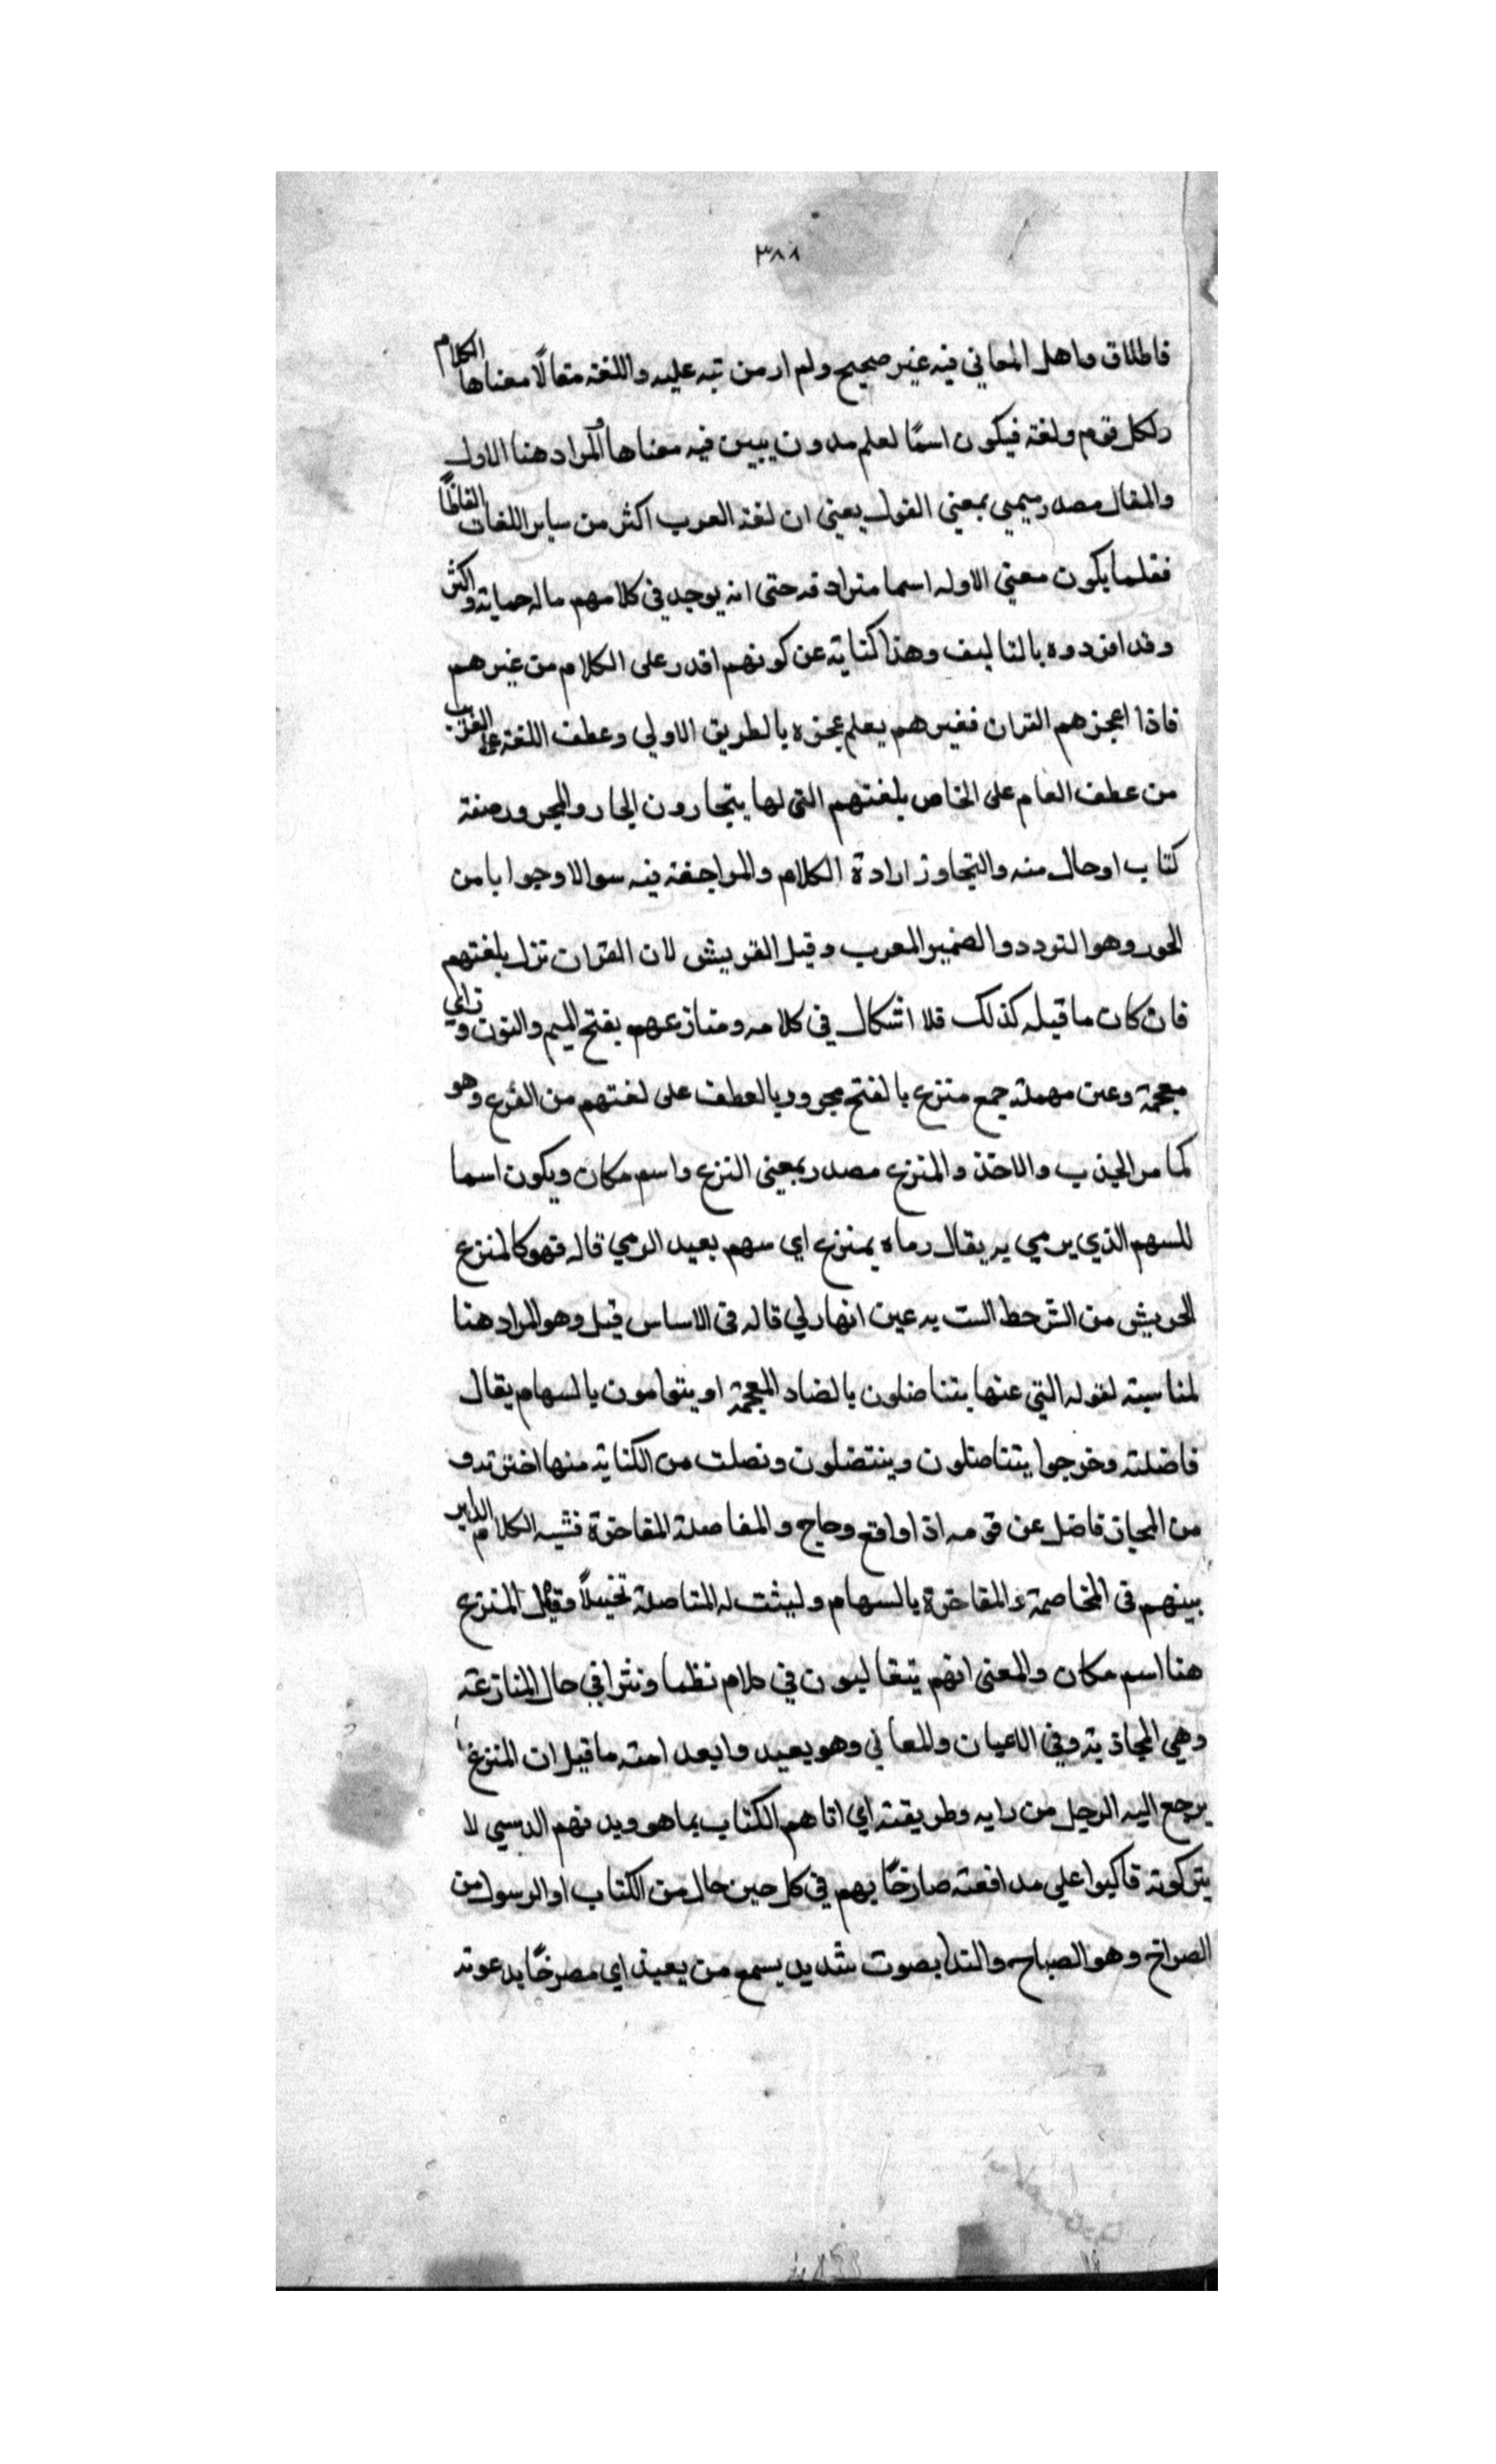 ٣٨٨
فاطلاق ماهل المعاني فيه غير صحيح ولم ار من نبه عليه واللغة مقالًا معناها الكلام
ولكل قوم ولغة فيكون اسمًا لعلم مدون يبين فيه معناها والمراد هنا الاول
والمقال مصدر ميمي بمعنى القول يعني ان لغة العرب اكثر من ساير اللغات الفاظًا
فقلما يكون معنى الاوله اسما مترادفه حتى انه يوجد في كلامهم ماله حمايته واكثر
وقد افردوه بالتاليف وهذا كناية عن كونهم اقدر على الكلام من غيرهم
فاذا اعجزهم القران فغيرهم يعلم عجزه بالطريق الاولي وعطف اللغة على الغريب
من عطف العام على الخاص بلغتهم التي لها يتجارون الجار والمجرور صفة
كتاب او حال منه والتجاوز ارادة الكلام والمراجعة فيه سوالا وجوابا من
الحور وهو التردد والضمير المعرب وقيل القريش لان القران نزل بلغتهم
فان كان ما قبله كذلك فلا اشكال في كلامه ومنازعهم بفتح الميم والنون وزاي
معجمة وعين مهملة جمع منزع بالفتح مجرور بالعطف على لغتهم من الفرع وهو
كما مر الجذب والاخذ والمنزع مصدر بمعنى النزع واسم مكان ويكون اسما
للسهم الذي يرمي به يقال رماه بمنزع اي سهم بعيد الرمي قاله فهو كالمنزع
الحريش من الشحط الست به عين انهارلي قاله في الاساس قيل وهو المراد هنا
لمناسبته لقوله التي عنها يتناضلون بالضاد المعجمة او يتوامون بالسهام يقال
فاضلته وخرجوا يتناضلون وينتضلون ونصلت من الكناية منها اخترت وف
من المجان فاضل عن قومه اذا اوافع وحاج والمفاصلة المفاخرة فشبه الكلام الداير
بينهم في المخاصمة والمفاخرة بالسهام وليثبت له المناصلة تخييلًا وقيل المنزع
هنا اسم مكان والمعنى انهم يتغالبون في كلام نظما ونثرا في حال المنازعة
وهي المجاذبة وفي الاعيان والمعاني وهو بعيد وابعد امنه ما قيل ان المنزع
يرجع اليه الرجل من رايه وطريقته اي اتاهم الكتاب بما هو ويدنهم الدسي لا
يتركونه فاكبوا على مدافعته صارخًا بهم في كل حين حال من الكتاب او الرسول من
الصراخ وهو الصياح والندا بصوت شديد يسمع من بعيد اي مصرخًا بدعوته